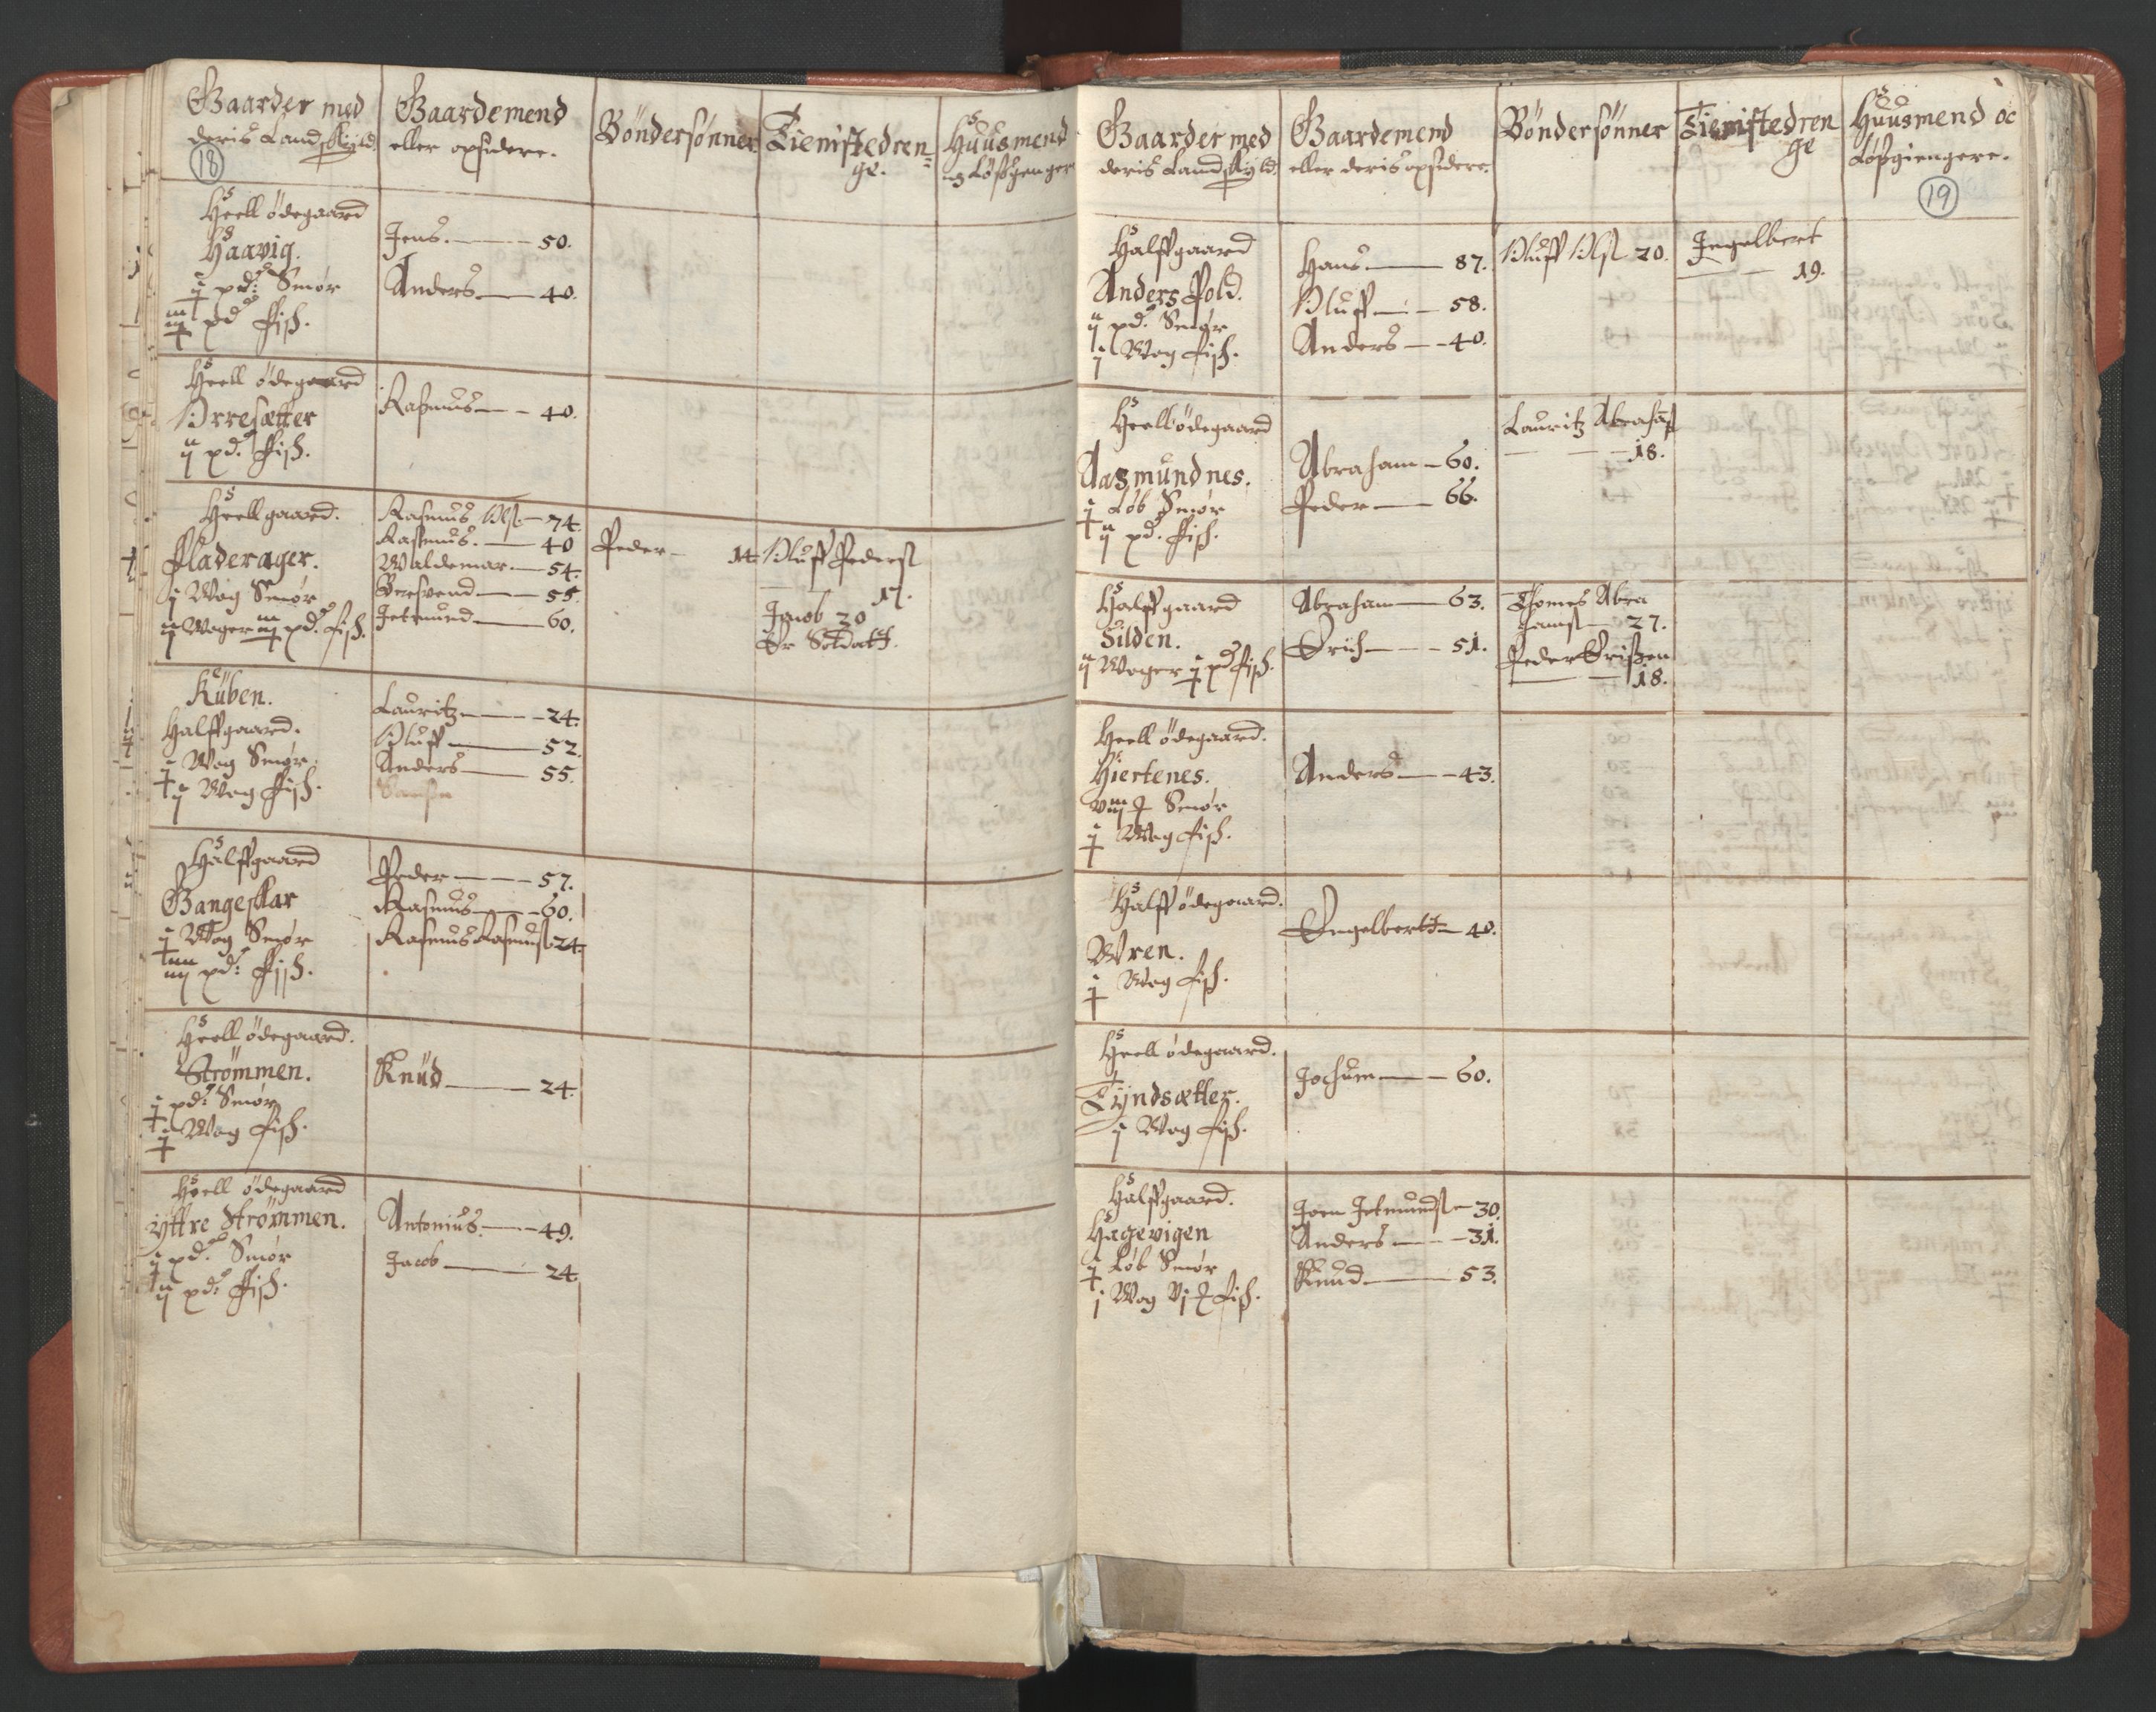 Gaarder med
deris Land Skyld.
18
Gaardemend
eller opsidere.
Bøndersønner
Tienistedren=
ge.
Huusmend
og Løsgenger
Heell ødegaard
Haavig.
j pd: Smør
pd Fisk.
Jens. 50.
Anders 40.
Heell ødegaard
Orresætter
ij pd. Fisk.
Rasmus 40.
Heell gaard.
Fladerager.
j Wog Smør
ij Woger iij pd. Fisk.
Rasmus Ols. 74.
Rasmus. 40
Waldemar. 54.
Bersvend 55.
Jetmund 60.
Peder 14
Oluff Peders
17.
Jacob 20
Er Soldatt.
Kuben.
Halffgaard.
j Wog Smør.
j Wog Fisk.
Lauritz 24.
Oluff 52.
Anders 55.
Halffgaard
Gangeskar
j Wog Smør
pd: Fisk.
Peder 57.
Rasmus 60.
Rasmus Rasmus 24.
Heell ødegaard.
Strømmen.
j pd: Smør
j Wog Fisk.
Knud 24.
Heell ødegaard
yttre Strømmen.
j pd. Smør
ij pd: Fisk.
Antonius. 49.
Jacob 24.
Gaarder med
deris Land Skyld.
Gaardemend
eller deris opsidere.
Bøndersønner
Tienistedren
ge
Huusmend oc
Løsgiengere.
19
Halffgaard
Anders Pold.
ij pd. Smør
j Wog Fisk.
Hans 87.
Oluff 58.
Anders 40.
Oluff Ols 20.
Ingelbert
19.
Heell ødegaard
Aasmundnes.
j Løb Smør
ij pd. Fisk.
Abraham 60.
Peder 66.
Lauritz Abrahās
18.
Halffgaard
Silden.
ij Woger j pd Fisk.
Abraham 63.
Erich 51.
Thomes Abra
hams 27.
Peder Erissen
18.
Heell ødegaard.
Hiertenes.
Smør
j Wog Fisk.
Anders 43.
Halff ødegaard.
Wren.
j Wog Fisk.
Engelbertt 40.
Heell ødegaard.
Tyndsætter.
j Wog Fisk.
Jochum 60.
Halffgaard.
Hagevigen
j Løb Smør
j Wog Fisk.
Joen Jetmunds 30.
Anders 31.
Knud 53.